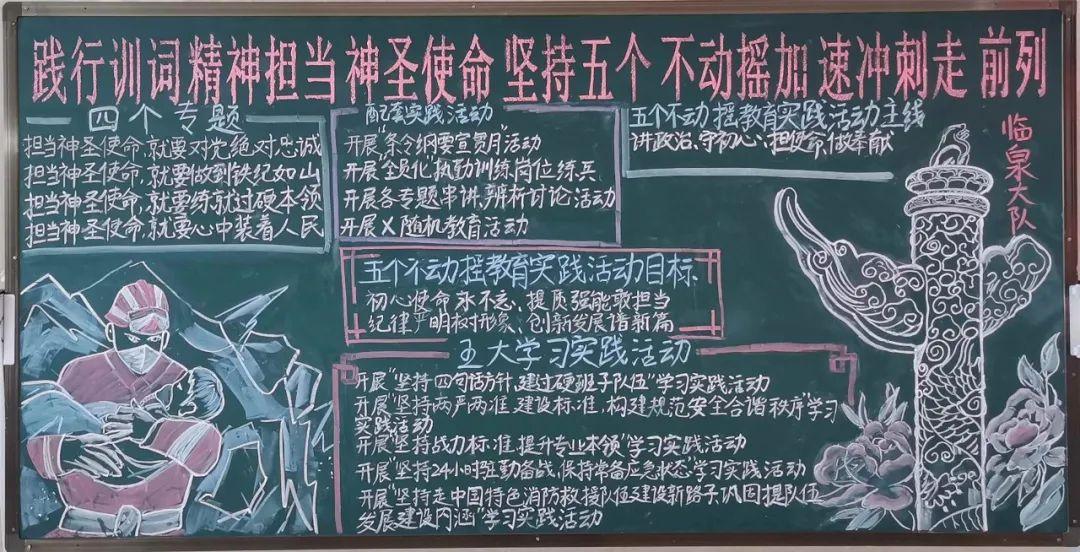 践行训词精神担当神圣使命 坚持五个不动摇加速冲刺走前列
四个专题
担当神圣使命,就要对党绝对忠诚
担当神圣使命,就要做到铁纪如山
担当神圣使命,就要练就过硬本领
担当神圣使命,就要心中装着人民
配套实践活动
开展"条令纲要宣贯月"活动
开展"全员化"执勤训练,岗位练兵
开展各专题串讲,辨析讨论活动
开展X随机教育活动
五个不动摇教育实践活动主线
讲政治、守初心、担使命,做奉献
临泉大队
五个不动摇教育实践活动目标
初心使命永不忘、提质强能敢担当
纪律严明树形象、创新发展谱新篇
五大学习实践活动
开展"坚持四句话方针,建过硬班子队伍"学习实践活动
开展"坚持两严两准,建设标准,构建规范安全合谐秩序"学习
实践活动
开展"坚持战力标准,提升专业本领"学习实践活动
开展"坚持24小时驻勤备战,保持常备应急状态"学习实践活动
开展"坚持走中国特色消防救援队伍建设新路子,巩固提队伍
发展建设内涵"学习实践活动